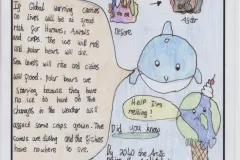 If Global warming carries
on lives will be at great
risk for Humans, Animals
and crops. The ice will melt
and polar bears will die.
Sea levels will rise and cities
will flood. Polar bears are
starving because they have
no ice to hunt on. The
changes in the weather will
affect some crops grown. The
comes are dying and the fishes
have nowhere to live.
Before
After
Help I'm
melting!
Did you know
By 2040 the Arctic